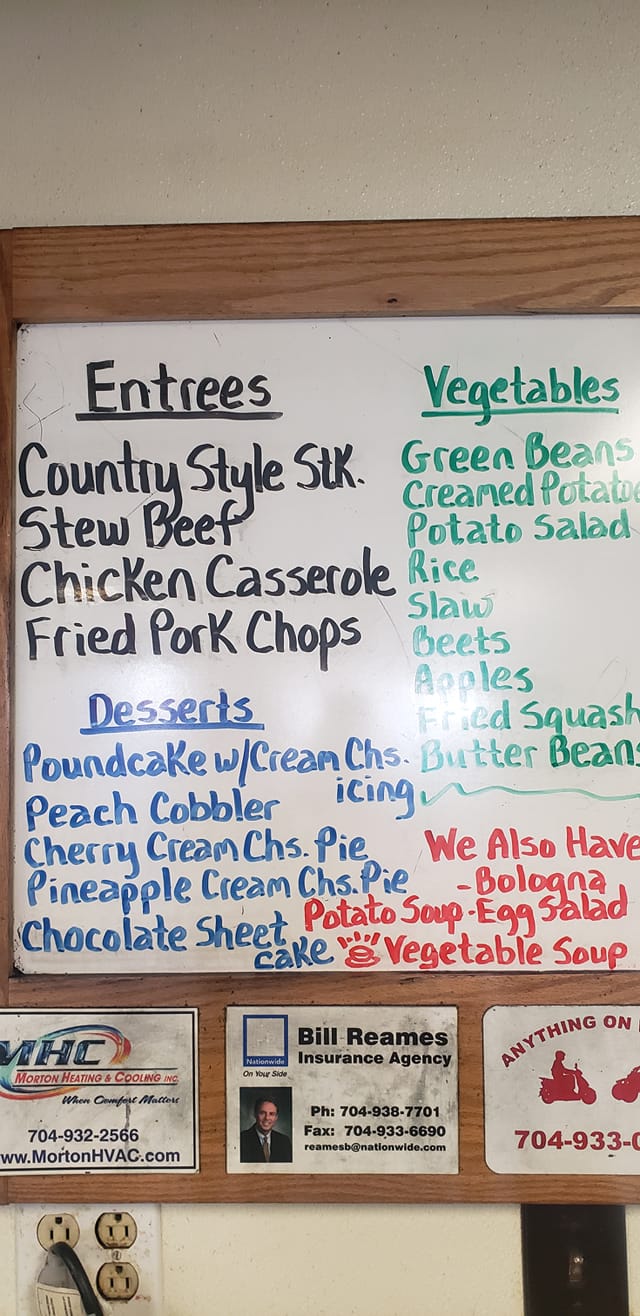 Entrees
Country Style Stk.
Stew Beef
Chicken Casserole
Fried Pork Chops
Desserts
Poundcake w/Cream Chs.
icing
Peach Cobbler
Cherry Cream Chs. Pie
Pineapple Cream Chs. Pie
Chocolate Sheet
cake
Vegetables
Green Beans
Creamed Potatoe
Potato Salad
Rice
Slaw
Beets
Apples
Fried Squash
Butter Beans
We Also Have
- Bologna
Potato Soup - Egg Salad
Vegetable Soup
MHC
MORTON HEATING & COOLING INC.
When Comfort Matters
704-932-2566
www.MortonHVAC.com
Nationwide
On Your Side
Bill Reames
Insurance Agency
Ph: 704-938-7701
Fax: 704-933-6690
reamesb@nationwide.com
ANYTHING ON
704-933-0